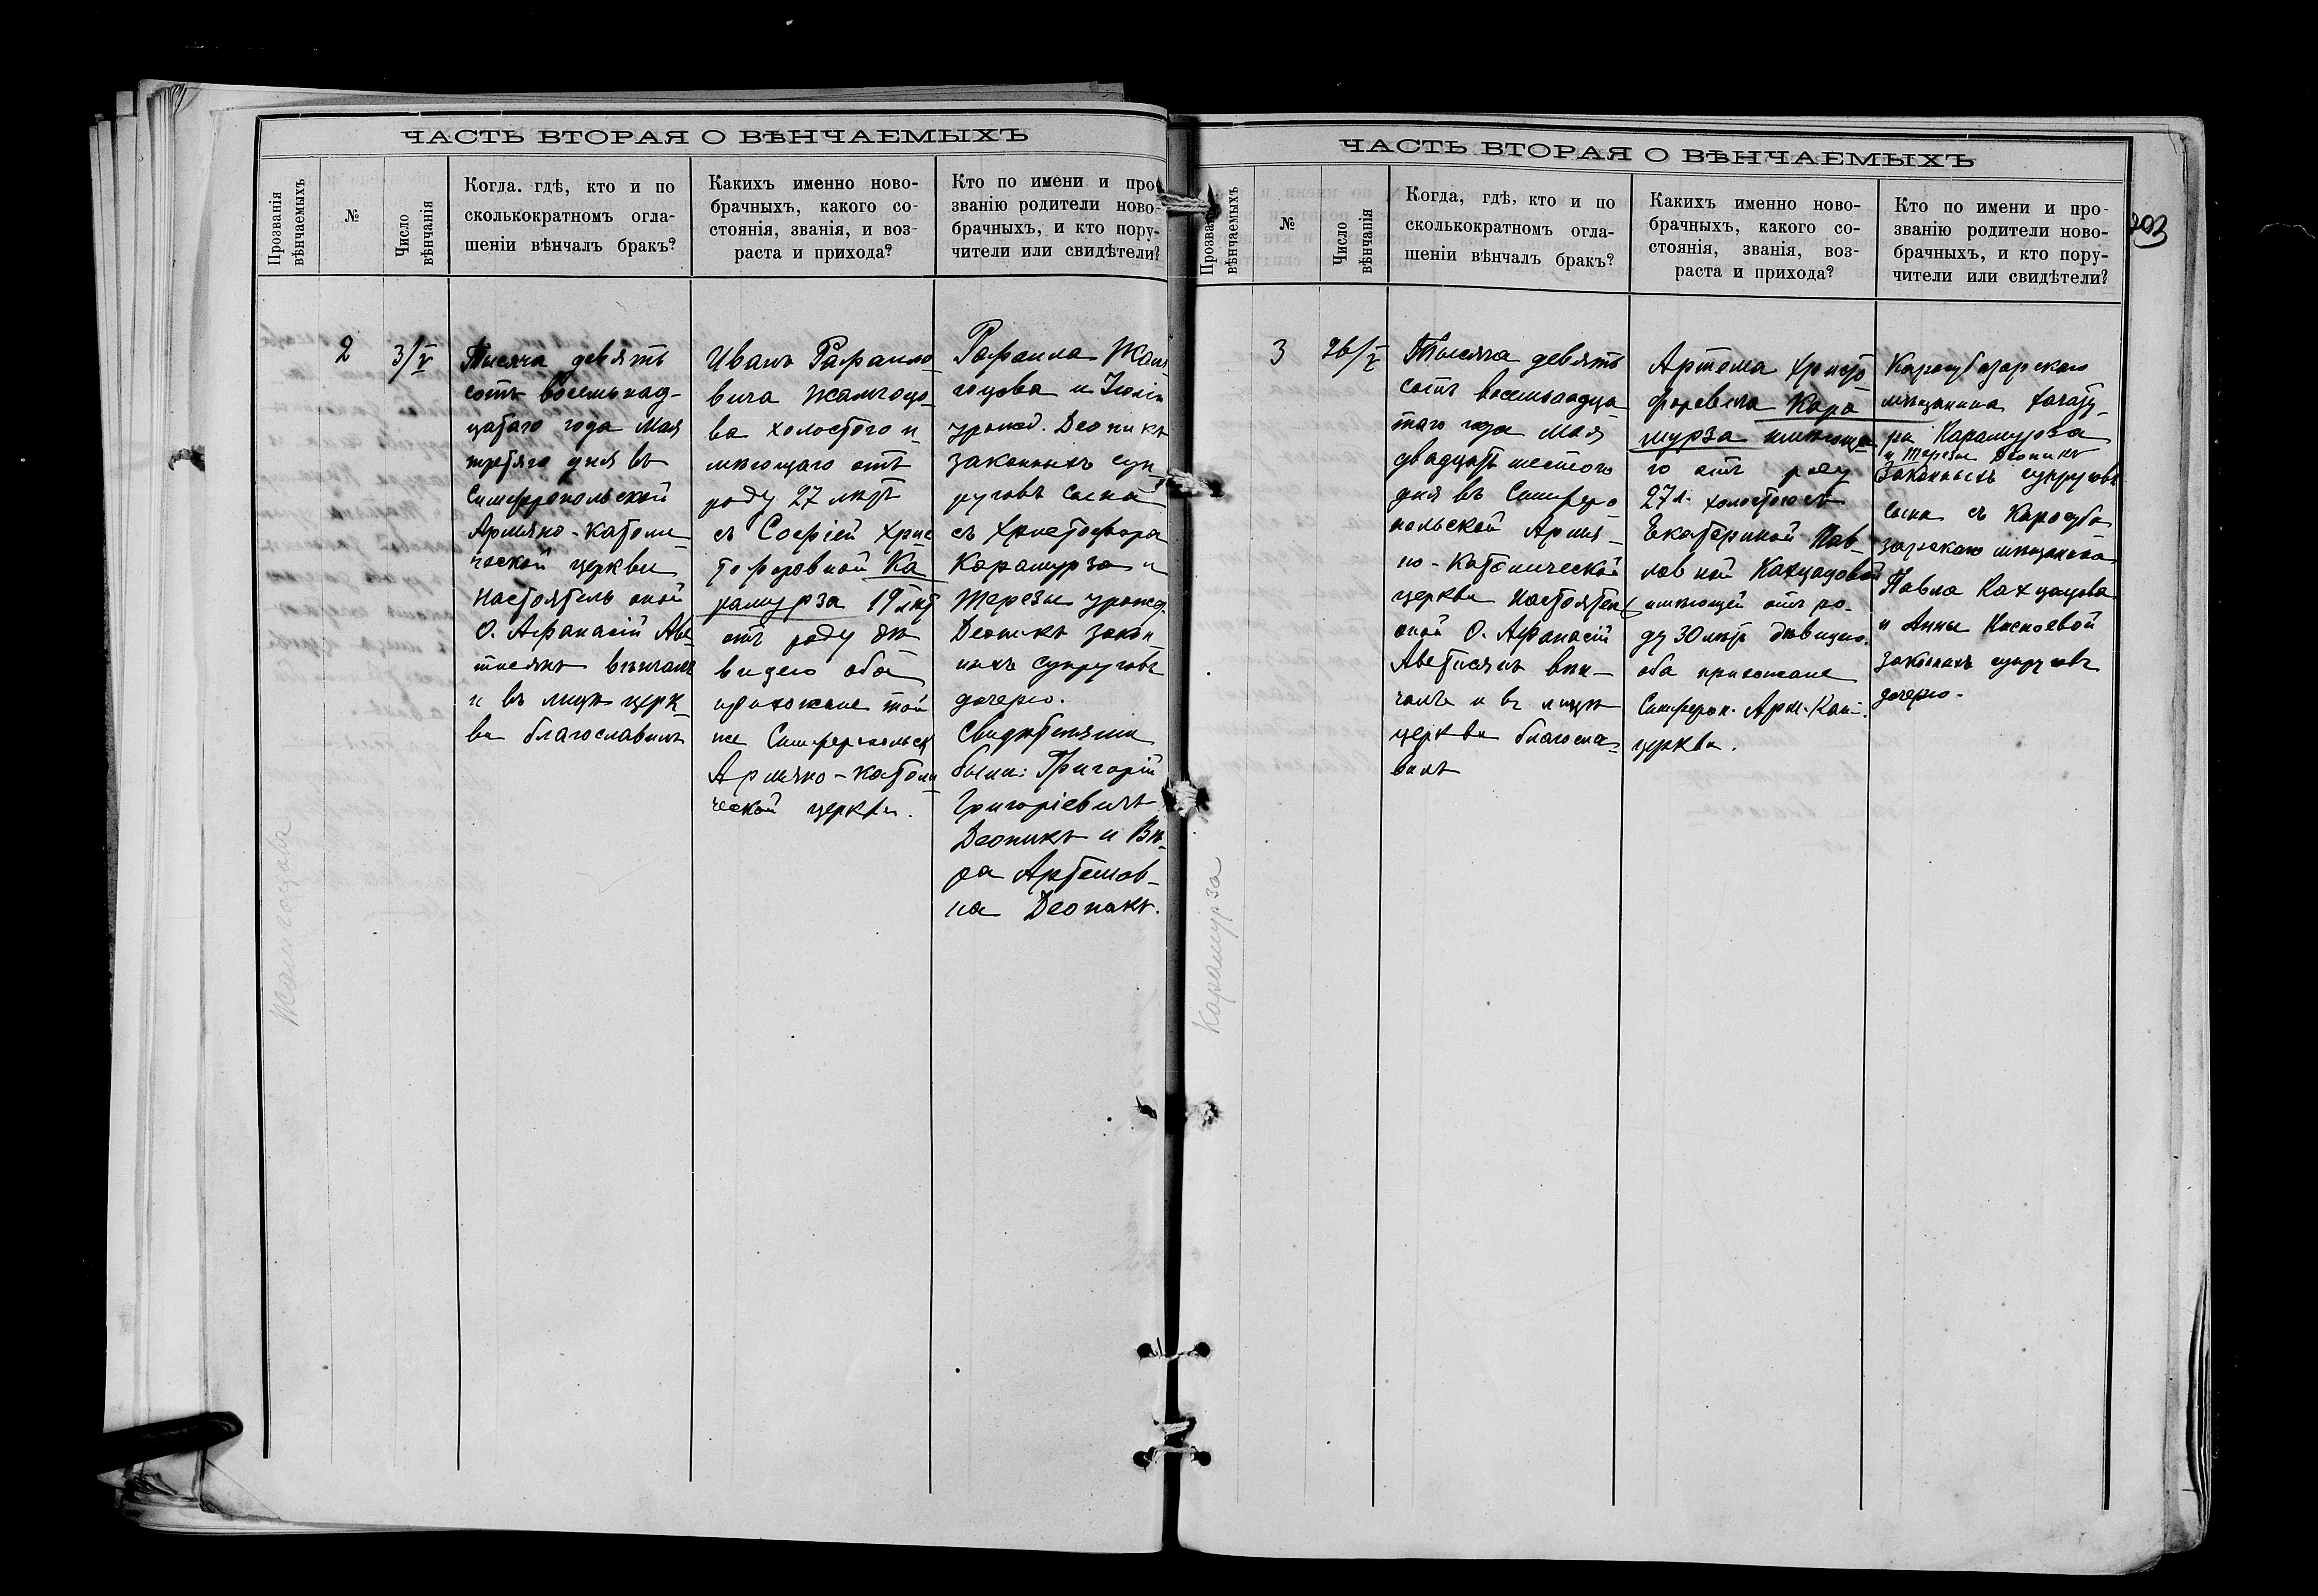 ЧАСТЬ ВТОРАЯ О ВѢНЧАЕМЫХЪ
Прозванія
вѣнчаемыхъ
№
Число
вѣнчанія
Когда. гдѣ, кто и по
сколькократномъ огла-
шеніи вѣнчалъ бракъ?
Каихъ именно ново-
брачныхъ, какого со-
стоянія, званія, и воз-
раста и прихода?
Кто по имени и про-
званію родители ново-
брачныхъ, и кто пору-
чители или свидѣтели?
2
3/V
Тысяча девять
сотъ восемьнад-
цатаго года Мая
третяго дня въ
Симферопольской
Армяно-католи
ческой церкви
Настоятель оной
О. Афанасій Аве
тисянъ вѣнчалъ
и въ лицѣ церк
ви благославилъ
Иванъ Рафаило
вича Жамгоцо
ва холостого и
мѣющаго отъ
роду 27 лѣтъ
съ Софіей Хрис
тофоровной Ка
рамурза 19 лѣт
отъ роду дѣ
вицею оба
прихожане той
же Симферопольск
Армяно-католи
ческой церкви.
Рафаила Жам
гоцова и Юліи
урожд. Деоникъ
законныхъ суп
руговъ сына
съ Христофора
Карамурза и
Терезы урожд.
Деоникъ закон
ныхъ супруговъ
дочерю.
Свидѣтелями
были: Григорій
Григоріевичъ
Деоникъ и Вѣ
ра Артемов-
на Деоникъ.
Жамгоцова
ЧАСТЬ ВТОРАЯ О ВѢНЧАЕМЫХЪ
Прозванія
вѣнчаемыхъ
№
Число
вѣнчанія
Когда, гдѣ, кто и по
сколькократномъ огла-
шеніи вѣнчалъ бракъ?
Какихъ именно ново-
брачныхъ, какого со-
стоянія, званія, воз-
раста и прихода?
Кто по имени и про-
званію родители ново-
брачныхъ, и кто пору-
чители или свидѣтели?
203
3
26/V
Тысяча девять
сотъ восемьнадца
таго года Мая
двадцать шестого
дня въ Симферо
польской Армя-
но-Католической
церкви Настоятель
оной О. Афанасій
Аветисянъ вѣн-
чалъ и въ лицѣ
церкви благосла-
вилъ
Артема Христо
форовича Кара
мурза имѣюща
го отъ роду
27 л. холостого съ
Екатериной Пав-
ловной Кахцацовой
имѣющей отъ ро-
ду 30 лѣтъ дѣвицею.
оба прихожане
Симфероп. Арм.-Кат.
церкви.
Карасубазарскаго
мѣщанина
Карамурза
и Терезы Деоникъ
Законныхъ супруговъ
сына съ Карасуба
зарскаго мѣщанина
Павла Кахцацова
и Анны
законныхъ супруговъ
дочерю.
Карамурза